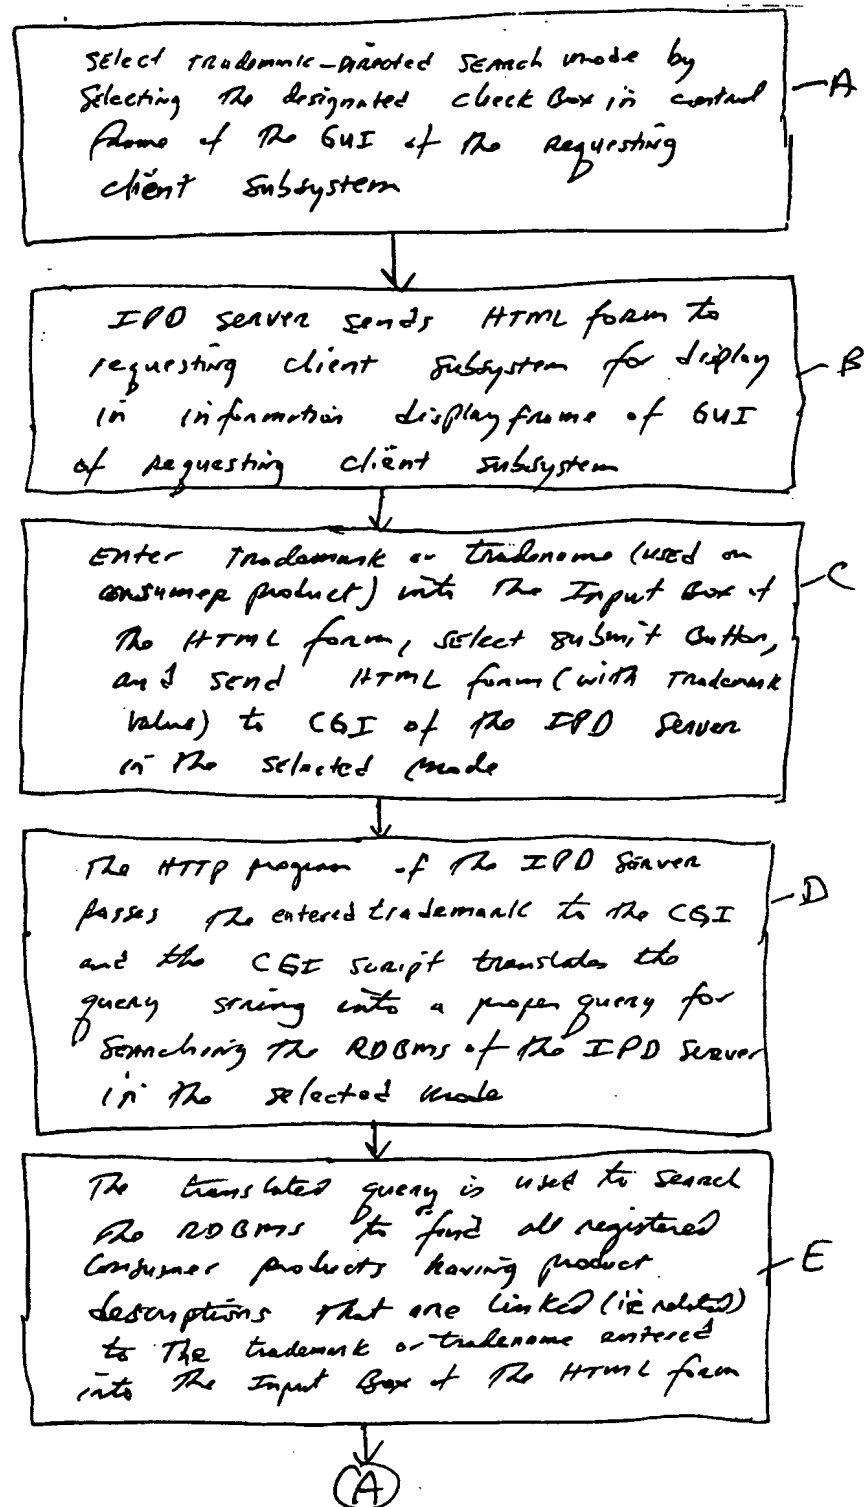 Select Trademark-Directed Search mode by
Selecting the designated check Box in control
frame of the GUI of the Requesting
client Subsystem
A
IPD Server Sends HTML form to
requesting client Subsystem for display
in information display frame of GUI
of Requesting client Subsystem
B
Enter Trademark or tradename (used on
consumer product) into the Input Box of
the HTML form, Select Submit Button,
and Send HTML form (with Trademark
Value) to CGI of the IPD Server
in the Selected Mode
C
The HTTP program of the IPD Server
passes the entered trademark to the CGI
and the CGI script translates the
query string into a proper query for
Searching the RDBMS of the IPD Server
in the selected mode
D
The translated query is used to Search
the RDBMS to find all registered
Consumer products having product
descriptions that are linked (ie related)
to the trademark or tradename entered
into the Input Box of the HTML form
E
A